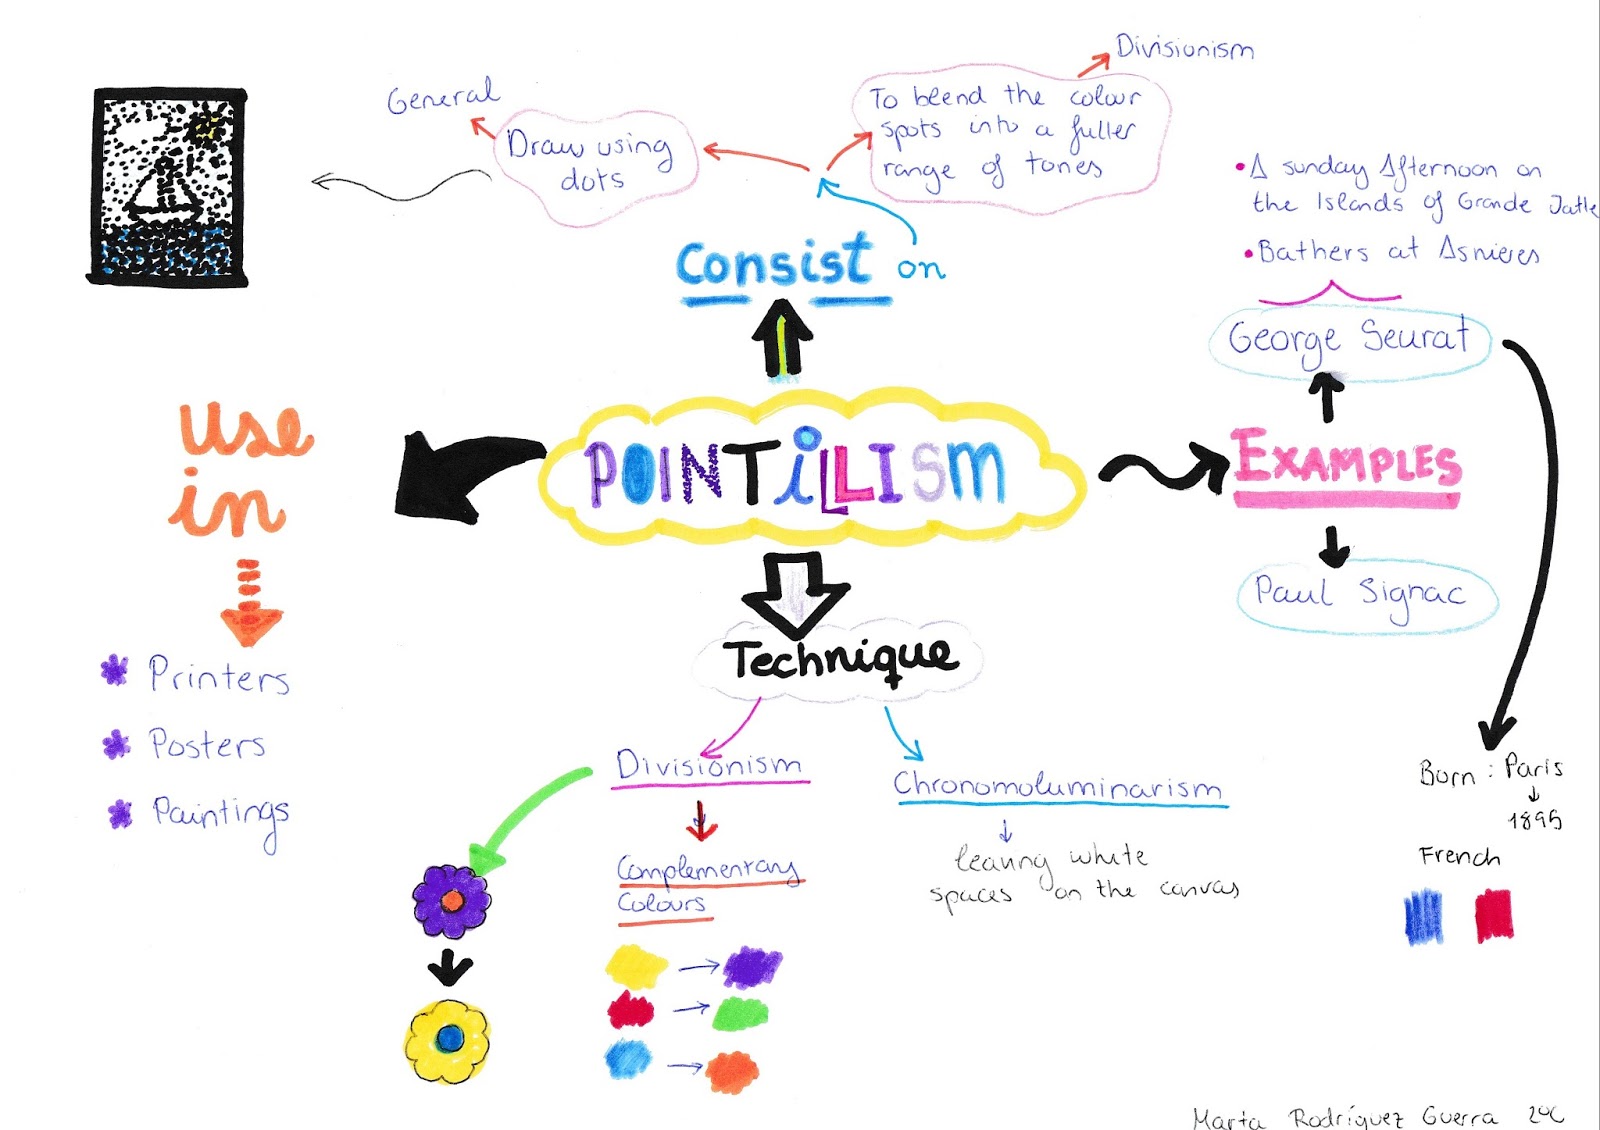 Divisionism
General
To blend the colour
spots into a fuller
range of tones
Draw using
dots
• A sunday Afternoon on
the Islands of Grande Jatte
• Bathers at Asnieres
Consist on
George Seurat
Use
in
POINTiLLISM
EXAMPLES
Paul Signac
Technique
Printers
Posters
Paintings
Divisionism
Chronomoluminarism
Complementary
Colours
leaving white
spaces on the canvas
Born : Paris
1895
French
Marta Rodríguez Guerra